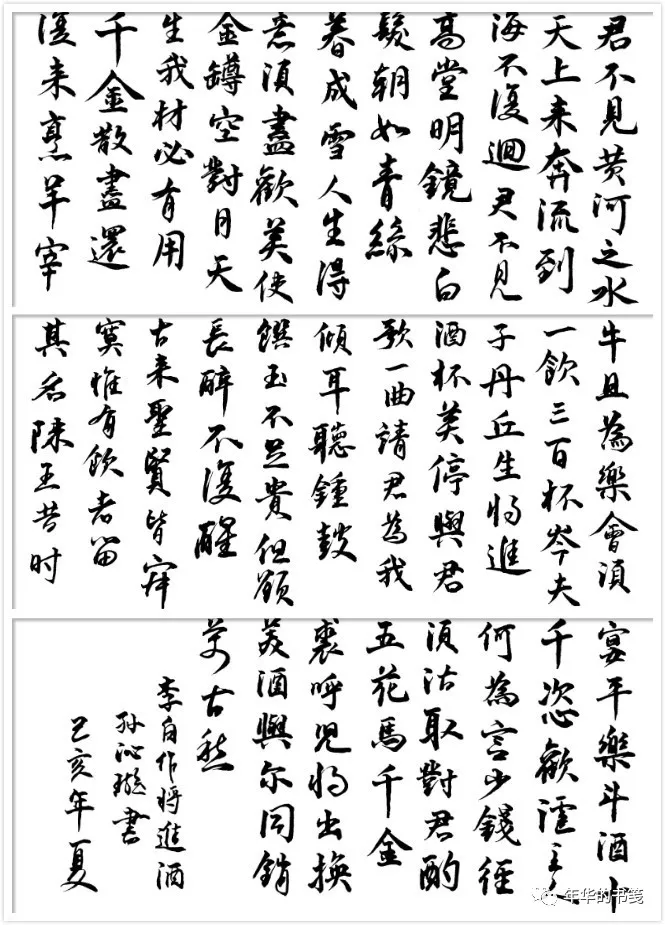 君不見黄河之水
天上来奔流到
海不復迴君不見
高堂明鏡悲白
髮朝如青絲
暮成雪人生得
意須盡歡莫使
金罇空對月天
生我材必有用
千金散盡還
復来烹羊宰
牛且為樂會須
一飲三百杯岑夫
子丹丘生将進
酒杯莫停與君
歌一曲請君為我
傾耳聽鍾鼓
饌玉不足貴但願
長醉不復醒
古来聖賢皆寂
寞惟有飲者留
其名陳王昔时
宴平樂斗酒十
千恣歡謔主人
何為言少錢徑
須沽取對君酌
五花馬千金
裘呼児将出換
美酒與尔同銷
萬古愁
李白作将進酒
孙沁璇書
己亥年夏
年华的书笺